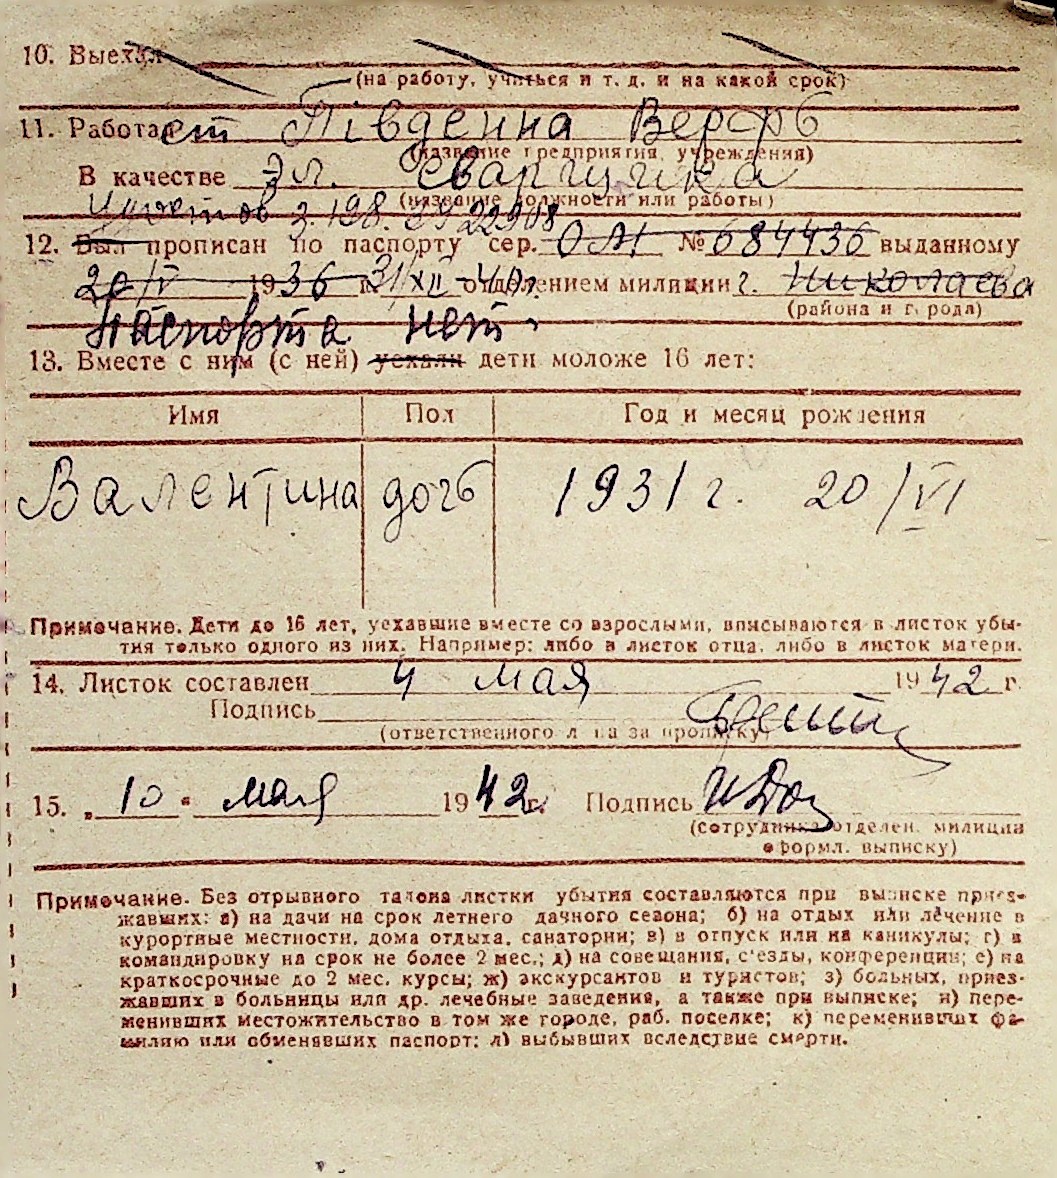 10. Выехал
(на работу, учиться и т. д. и на какой срок)
11. Работает Південна Верфь
(название предприятия, учреждения)
В качестве Эл. сварщика
(название должности или работы)
12. Был прописан по паспорту сер. ОМ № 684436 выданному
20/IV 1936 31/XII 40г. отделением милиции г. Николаева
(района и города)
Паспорта нет.
13. Вместе с ним (с ней) уехали дети моложе 16 лет:
Имя Пол Год и месяц рождения
Валентина дочь 1931 г. 20/VI
Примечание. Дети до 16 лет, уехавшие вместе со взрослыми, вписываются в листок убы-
тия только одного из них. Например: либо в листок отца, либо в листок матери.
14. Листок составлен 4 мая 1942 г.
Подпись
(ответственного лица за прописку)
15. „10" мая 1942 г. Подпись
(сотрудника отделен. милиции
оформл. выписку)
Примечание. Без отрывного талона листки убытия составляются при выписке приез-
жавших: а) на дачи на срок летнего дачного сезона; б) на отдых или лечение в
курортные местности, дома отдыха, санатории; в) в отпуск или на каникулы; г) в
командировку на срок не более 2 мес.; д) на совещания, с'езды, конференции; е) на
краткосрочные до 2 мес. курсы; ж) экскурсантов и туристов; з) больных, приез-
жавших в больницы или др. лечебные заведения, а также при выписке; и) пере-
менивших местожительство в том же городе, раб. поселке; к) переменивших фа-
милию или обменявших паспорт; л) выбывших вследствие смерти.